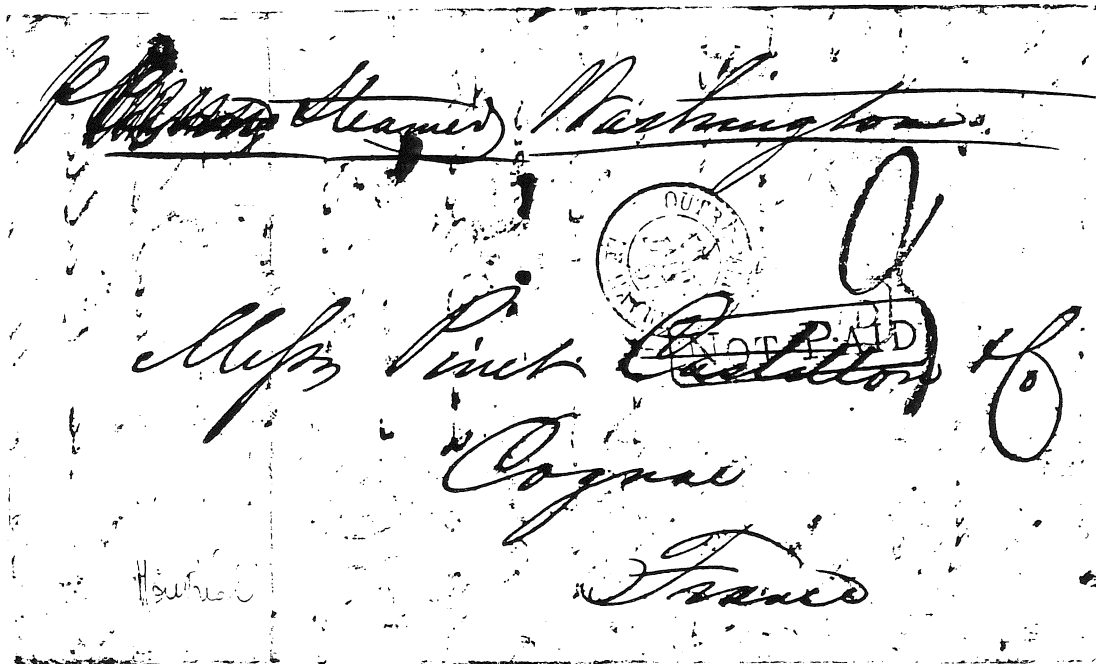 p Steamer Washington
OUTRE
NOT PAID
Messrs Pinet Castillon & Co
Cognac
France